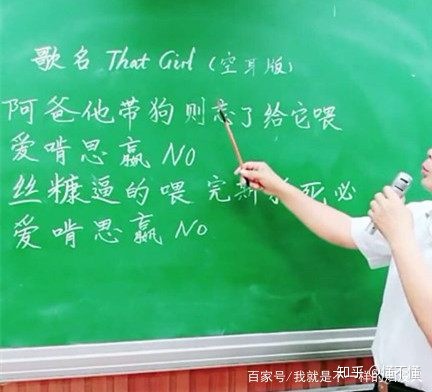 歌名 That Girl (空耳版)
阿爸他带狗则忘了给它喂
爱啃思赢 NO
丝糠逼的喂 完 死必
爱啃思赢 NO
知乎
百家号/我就是不一样的